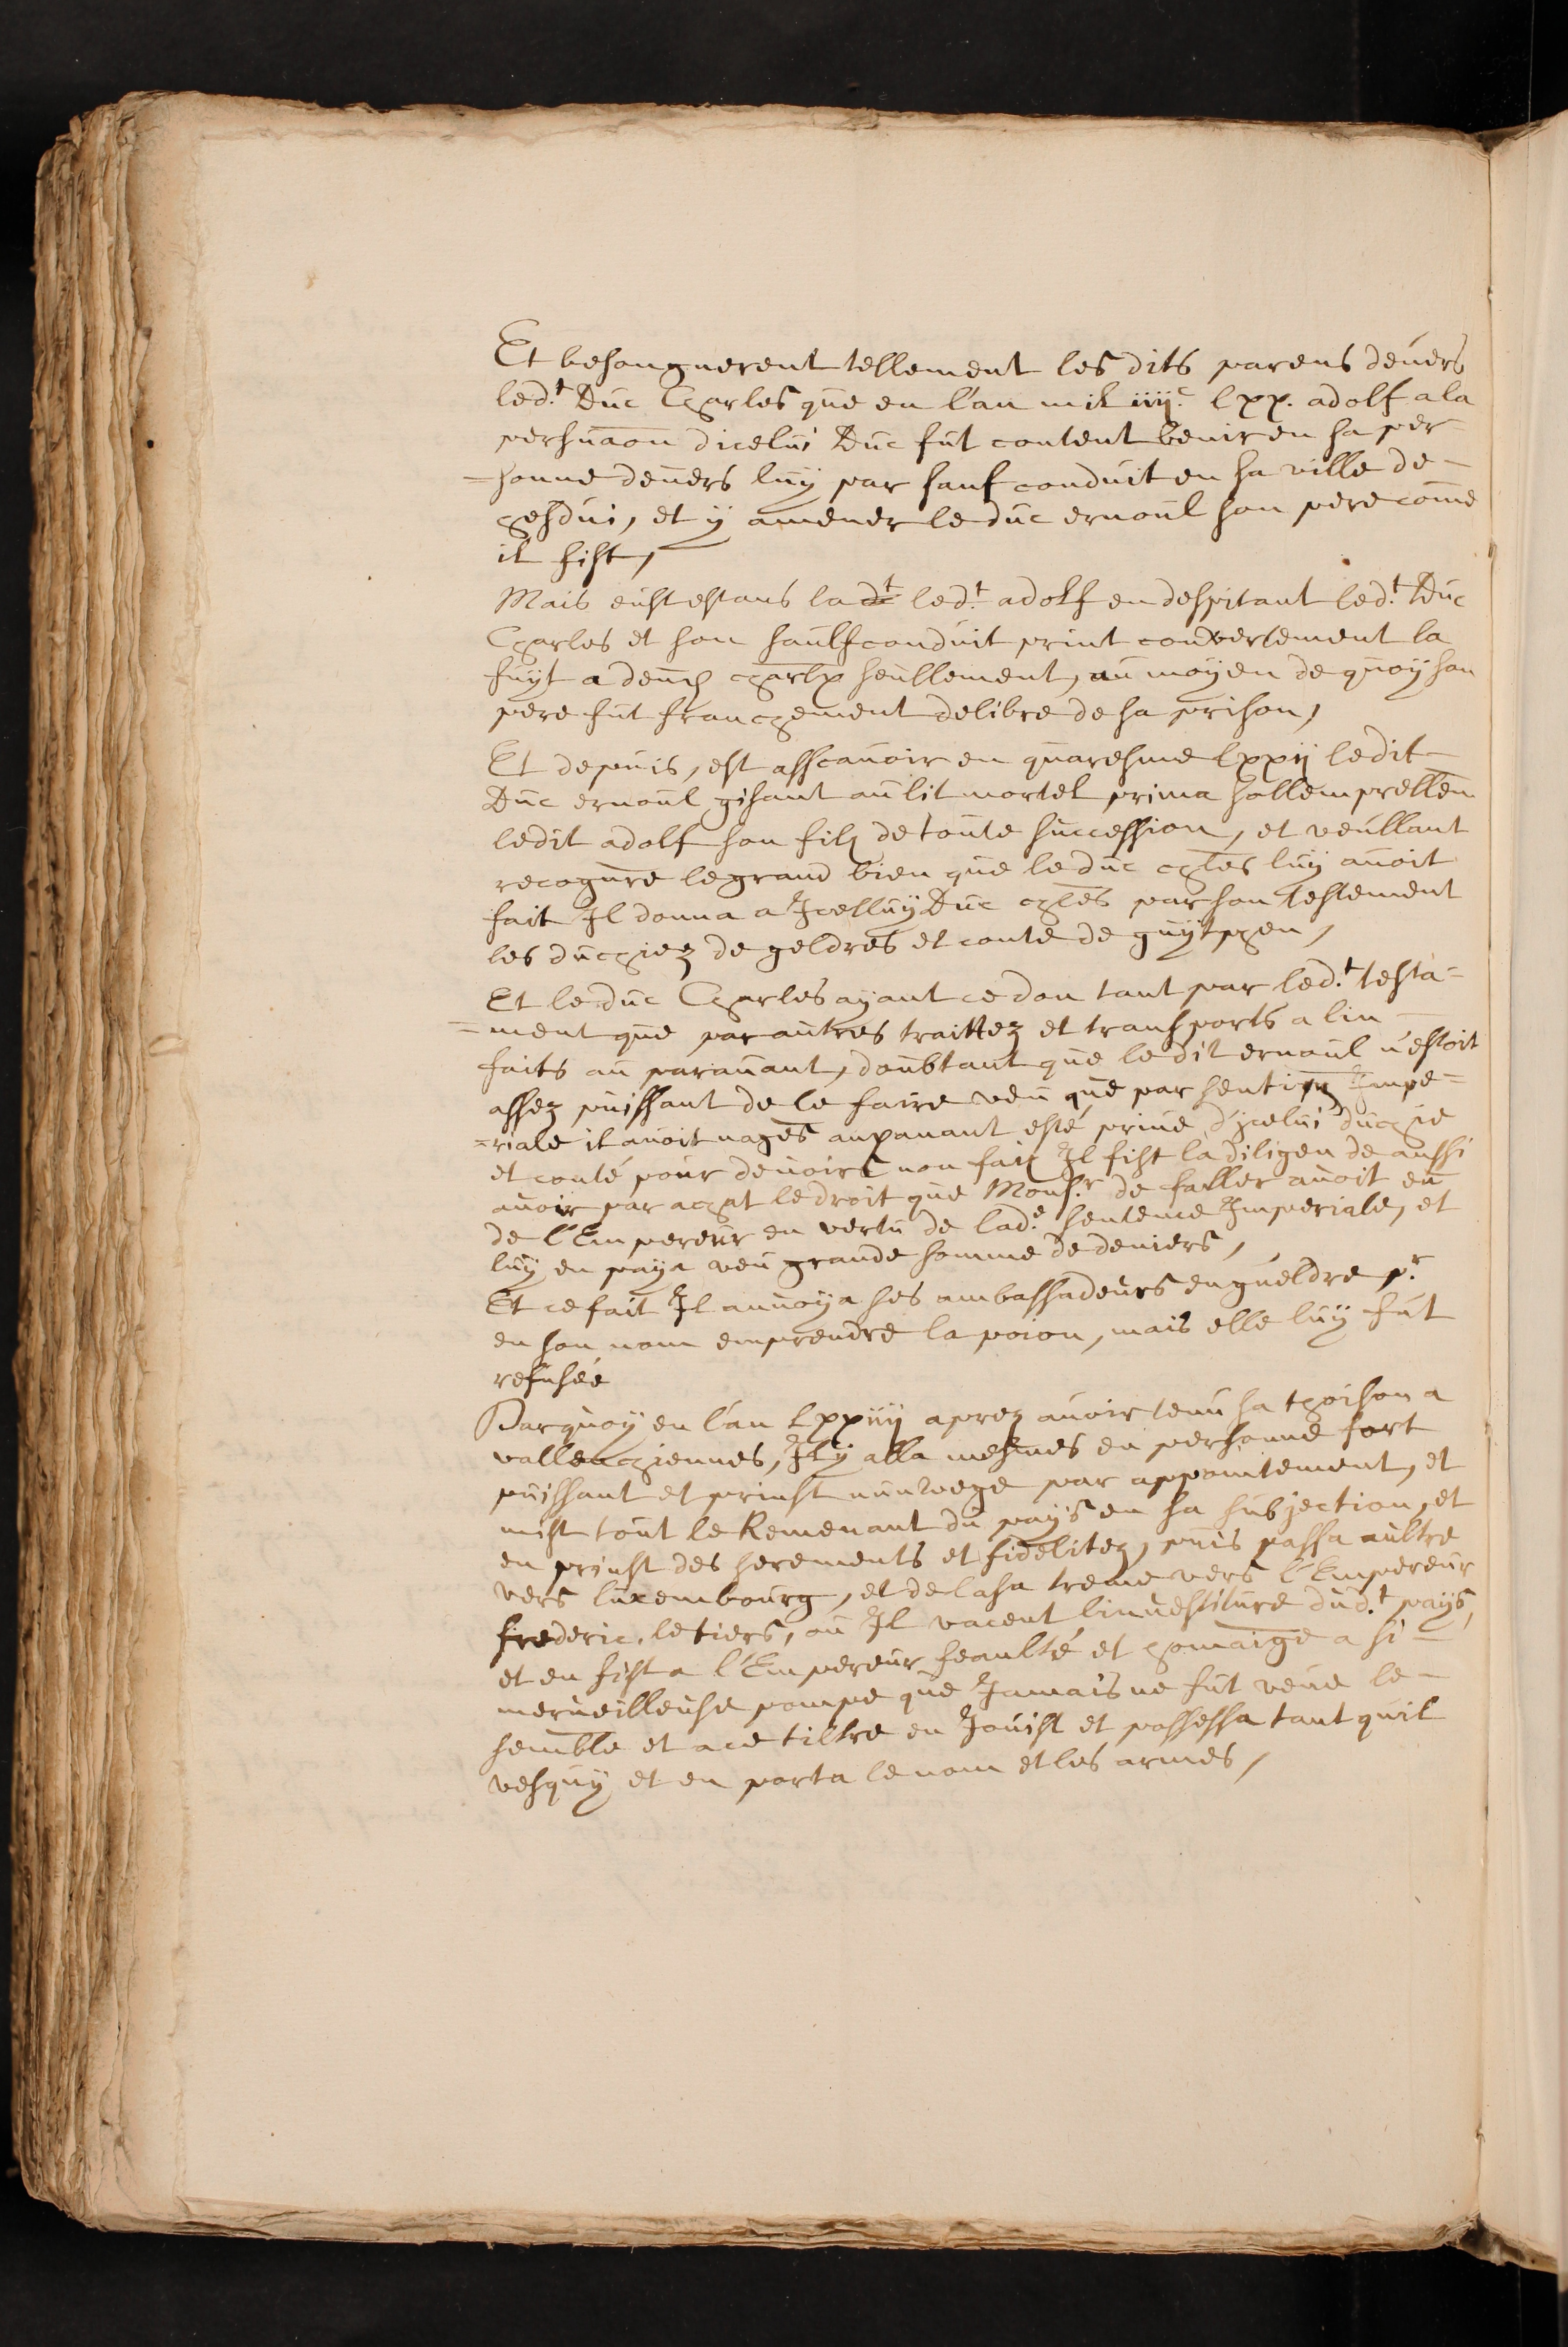 Et besonguerent tellement les dits parens devers
led.t Duc Charles que en l'an mil iiij.c lxx. adolf a la
persuaon dicelui Duc fut content venir en sa per-
-sonne devers luy par sauf conduit en sa ville de-
hesdin, et y amener le duc ernoul son pere come
il fist,
Mais eulx estans la led.t adolf en despitant led.t Duc
Charles et son saulfconduit print couvertement la
fuyt a deux chevlx seullement, au moyen de quoy son
pere fut franchement delibre de sa prison,
Et depuis, est assçavoir en quaresme lxxij ledit-
Duc ernoul gisant au lit mortel priva sollempnellen
ledit adolf son filz de toute succession, et veullant
recognre le grand bien que le duc chles luy avoit
fait Il donna a Icelluy Duc chles par son testement
les duchiez de geldres et conte de zuytphen,
Et le duc Charles ayant ce don tant par led.t testa-
=ment que par autres traittez et transports a lui-
faits au paravant, doubtant que le dit ernoul n'estoit
assez puissant de le faire veu que par Impe=
=riale il avoit nages auparavant esté privé d'jcelui duchie
et conté pour devoirs non faiz Il fist la diligen de aussi
avoir par achat le droit que Mons.r de avoit eu
de l'Empereur en vertu de lad.e sentence Imperiale, et
luy en paya grande somme de deniers,
Et ce fait Il anvoya ses ambassadeurs en gueldre p.r
en son nom emprendre la poion, mais elle luy fut
refusée
Parquoy en l'an lxxiij aprez avoir tenu sa thoison a
vallenchiennes, Il y alla mesmes en personne fort
puissant et prinst par appointement, et
mist tout le Remenant du pays en sa subjection, et
en prinst des serements et fidelitez, puis passa aultre
vers luxembourg, et de la sa treme vers l'Empereur
frederic, le tiers, ou Il linvestiture dud.t pays,
et en fist a l'Empereur feaulté et homaige a si-
merveilleuse pompe que Jamais ne fut veue le-
semble et a ce tiltre en Jouist et possessa tant quil
vesquy et en porta le nom et les armes,